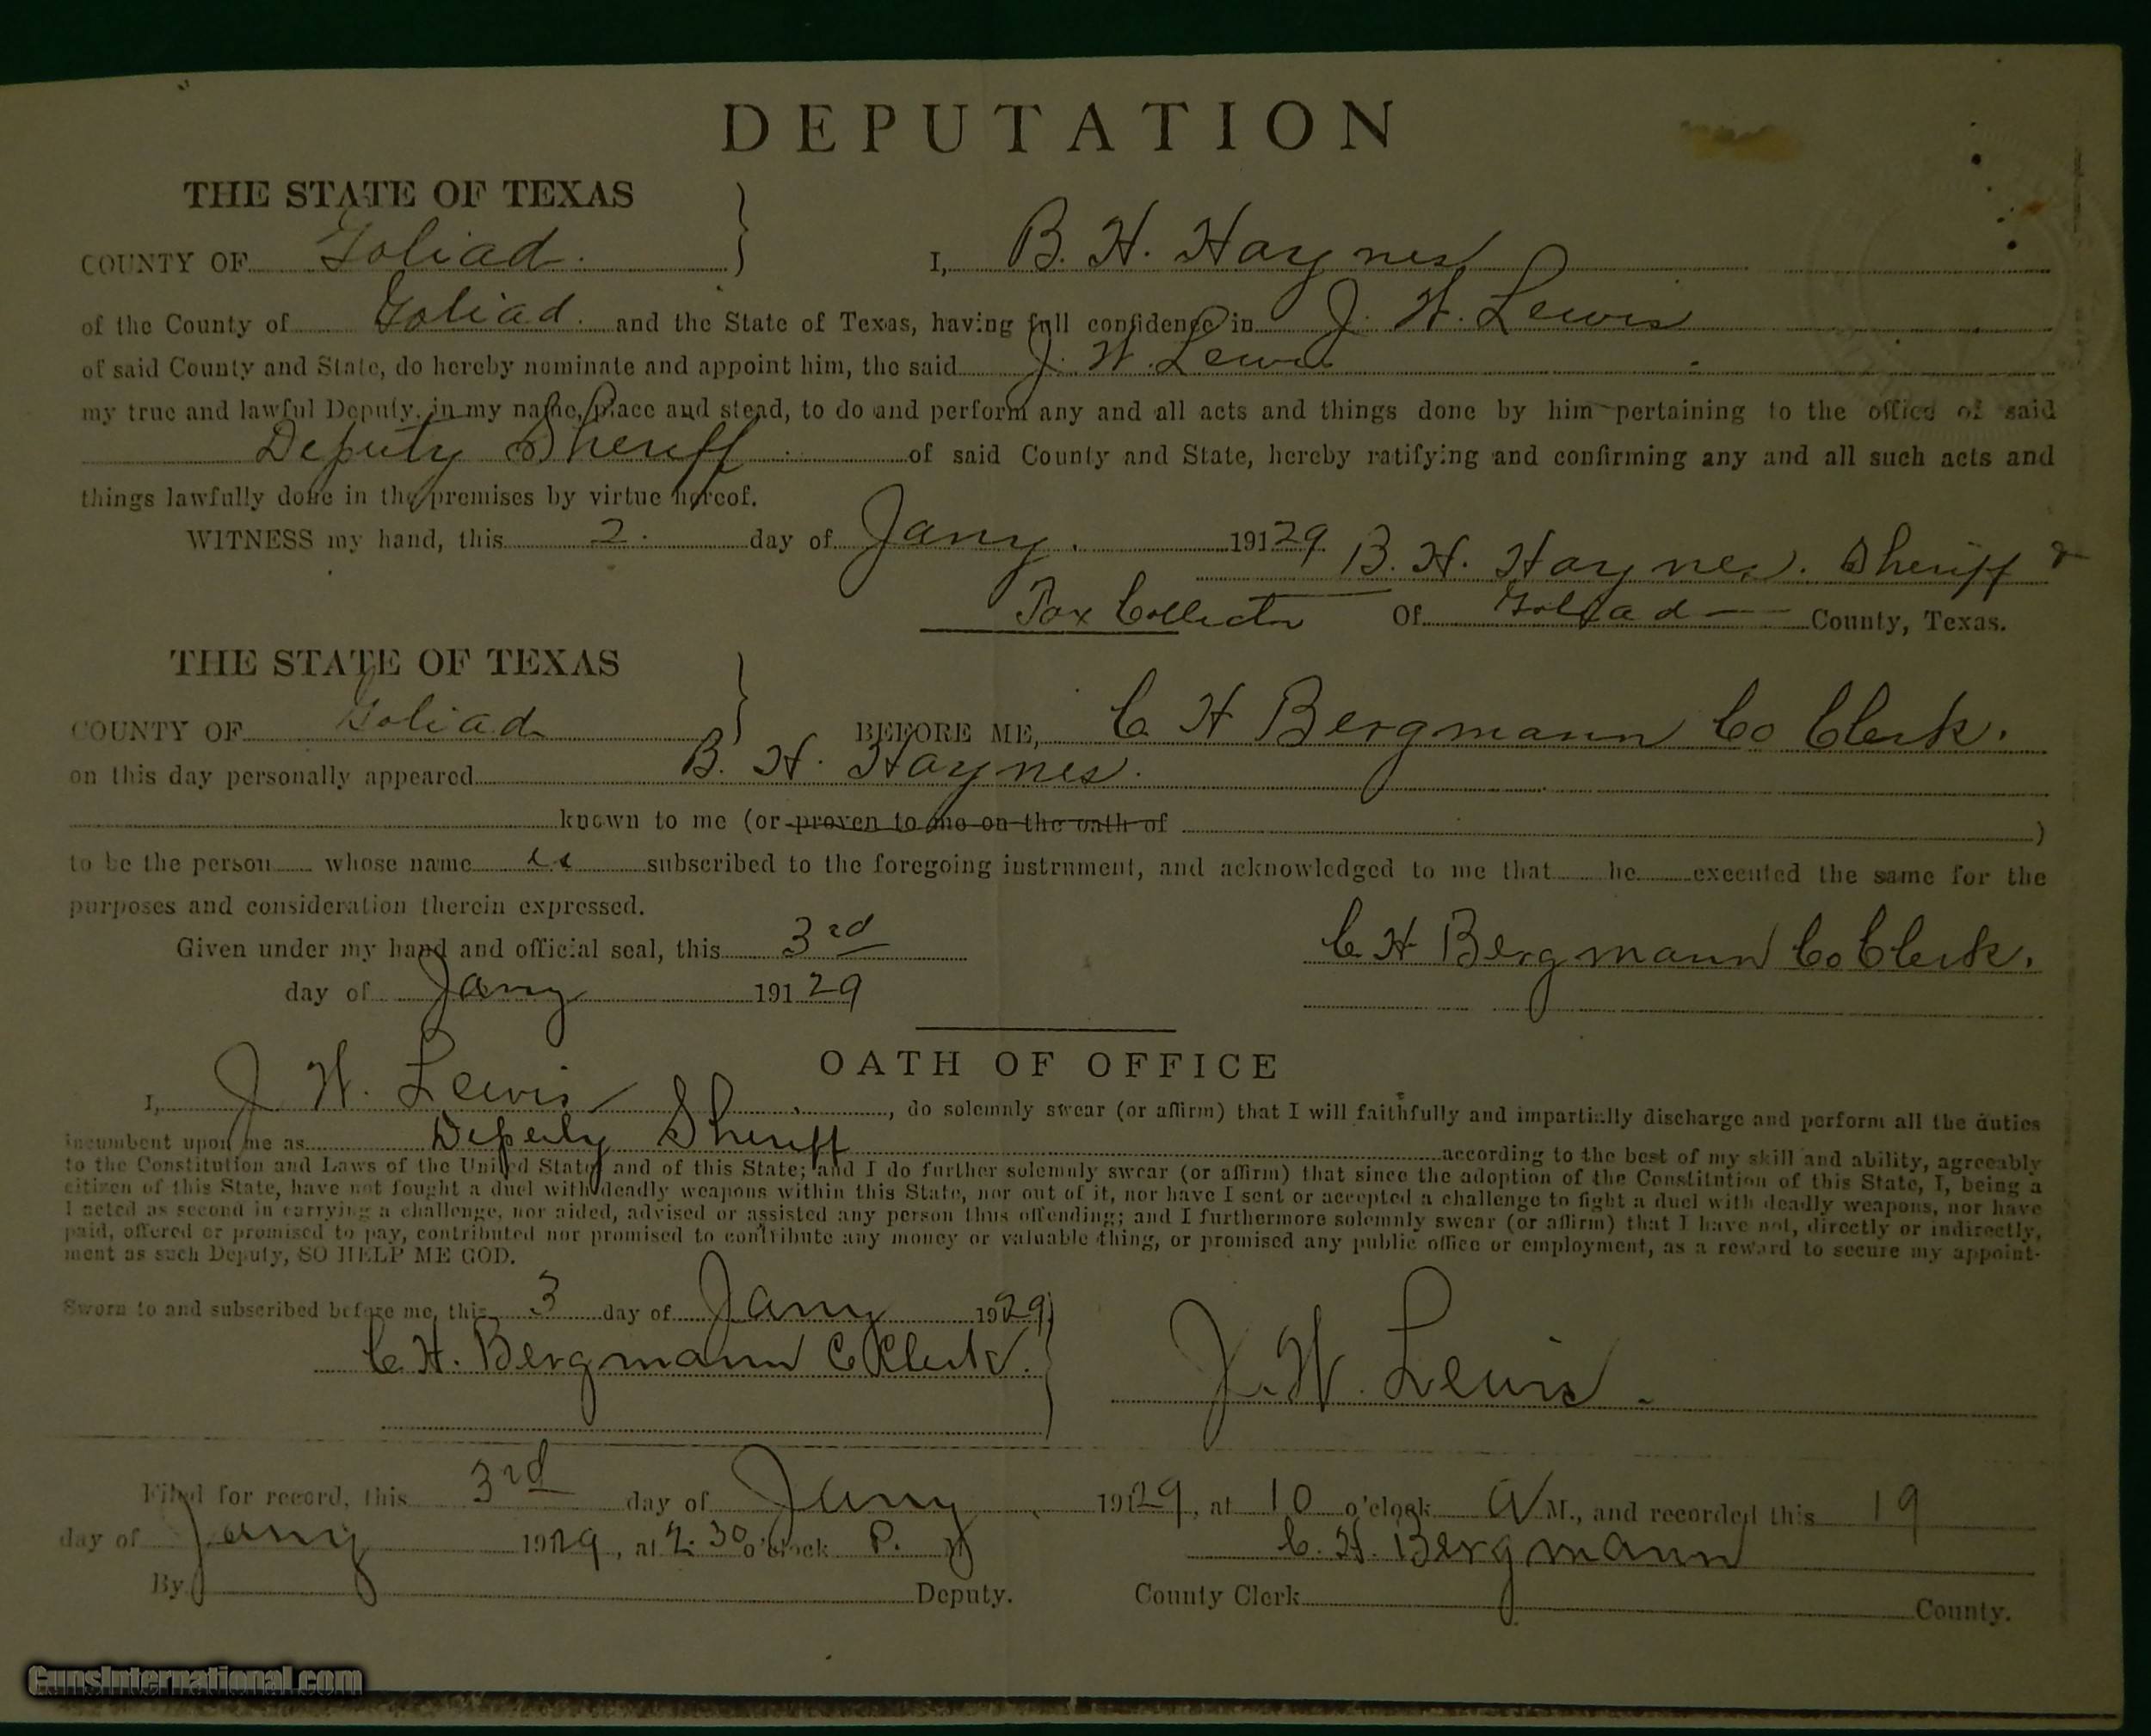 DEPUTATION
THE STATE OF TEXAS
COUNTY OF Goliad. } I, B. H. Haynes
of the County of Goliad. and the State of Texas, having full confidence in J. W. Lewis
of said County and State, do hereby nominate and appoint him, the said J. W. Lewis
my true and lawful Deputy, in my name, place and stead, to do and perform any and all acts and things done by him pertaining to the office of said
Deputy Sheriff of said County and State, hereby ratifying and confirming any and all such acts and
things lawfully done in the premises by virtue hereof.
WITNESS my hand, this 2. day of Jany. 19129 B. H. Haynes. Sheriff &
Tax Collector Of Goliad County, Texas.
THE STATE OF TEXAS
COUNTY OF Goliad } BEFORE ME, C H Bergmann Co Clerk.
on this day personally appeared B. H. Haynes.
known to me (or proven to me on the oath of )
to be the person whose name is subscribed to the foregoing instrument, and acknowledged to me that he executed the same for the
purposes and consideration therein expressed.
Given under my hand and official seal, this 3rd
day of Jany 19129
C H Bergmann Co Clerk.
OATH OF OFFICE
I, J W. Lewis, do solemnly swear (or affirm) that I will faithfully and impartially discharge and perform all the duties
incumbent upon me as Deputy Sheriff according to the best of my skill and ability, agreeably
to the Constitution and Laws of the United States and of this State; and I do further solemnly swear (or affirm) that since the adoption of the Constitution of this State, I, being a
citizen of this State, have not fought a duel with deadly weapons within this State, nor out of it, nor have I sent or accepted a challenge to fight a duel with deadly weapons, nor have
I acted as second in carrying a challenge, nor aided, advised or assisted any person thus offending; and I furthermore solemnly swear (or affirm) that I have not, directly or indirectly,
paid, offered or promised to pay, contributed nor promised to contribute any money or valuable thing, or promised any public office or employment, as a reward to secure my appoint-
ment as such Deputy, SO HELP ME GOD.
Sworn to and subscribed before me, this 3 day of Jany 1929
C. H. Bergmann Co Clerk. } J. W. Lewis.
Filed for record, this 3rd day of Jany 19129, at 10 o'clock A M., and recorded this 19
day of Jany 1929, at 2:30 o'clock P. M
C. H. Bergmann
By Deputy. County Clerk County.
GunsInternational.com